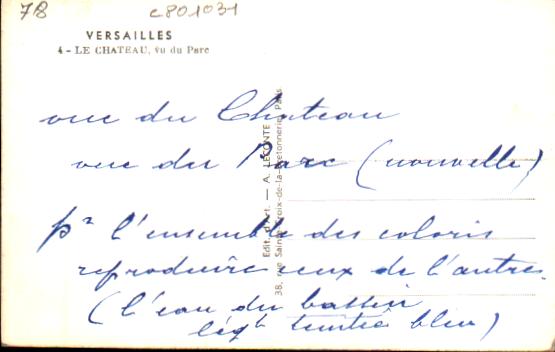 78
C801031
VERSAILLES
4 - LE CHATEAU, vu du Parc
vue du Chateau
vue du Parc (nouvelle)
pr l'ensemble des coloris
reproduire ceux de l'autre
(l'eau du bassin
légt teintée bleu)
Edit. d'Art. — A. LECONTE
38, rue Sainte-Croix-de-la-Bretonnerie, Paris